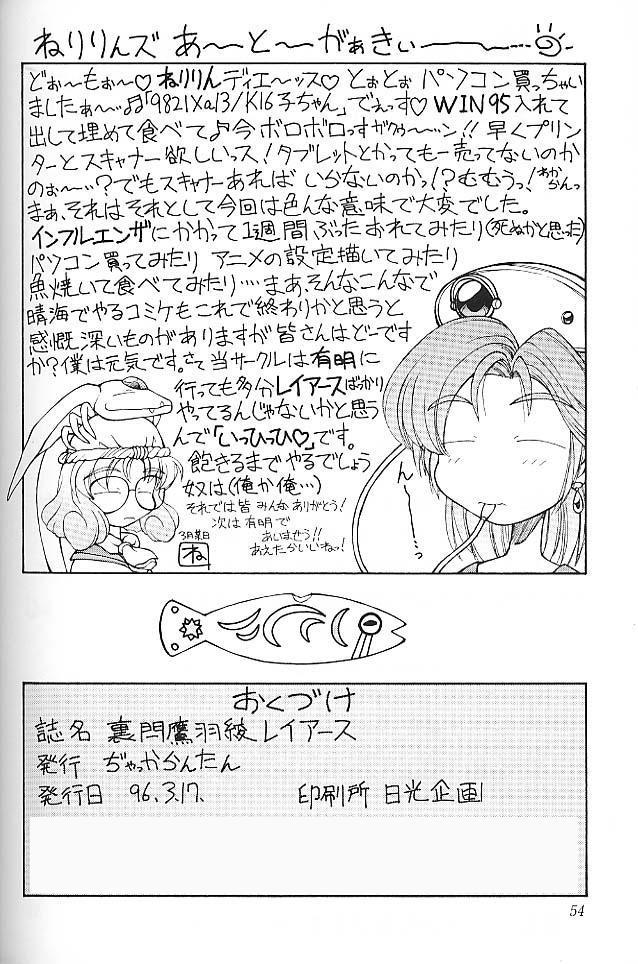 ねりりんズ あ～～と～～がぁきぃ―――…
どぉ～もぉ～♡ねりりんディエ～ッス♡とぉとぉパソコン買っちゃい
ましたぁ～♫「9821Xa13/K16子ちゃん」でぇっす♡WIN95入れて
出して埋めて食べて♪今ボロボロっすがクゥ～～ン!!早くプリン
ターとスキャナー欲しいっス!タブレットとかっても一売ってないのか
のぉ～…?でもスキャナーあればいらないのかっ!?むむうっ!わからんっ
まぁ、それはそれとして今回は色んな意味で大変でした。
インフルエンザにかかって1週間ぶったおれてみたり(死ぬかと思った)
パソコン買ってみたりアニメの設定描いてみたり
魚焼いて食べてみたり…まあそんなこんなで
晴海でやるコミケもこれで終わりかと思うと
感慨深いものがありますが皆さんはどーです
か?僕は元気です。さて当サークルは有明に
行っても多分レイアースばかり
やってるんじゃないかと思う
んで「いっひっひ♡」です。
飽きるまでやるでしょう
奴は(俺か俺…)
それでは皆みんなありがとう!
次は有明で
あいませう!!
あえたらいいねっ!
3月某日
ね
ん―…っ
おくづけ
誌名 裏閂鷹羽綾レイアース
発行 ぢゃっからんたん
発行日 96.3.17. 印刷所 日光企画
54